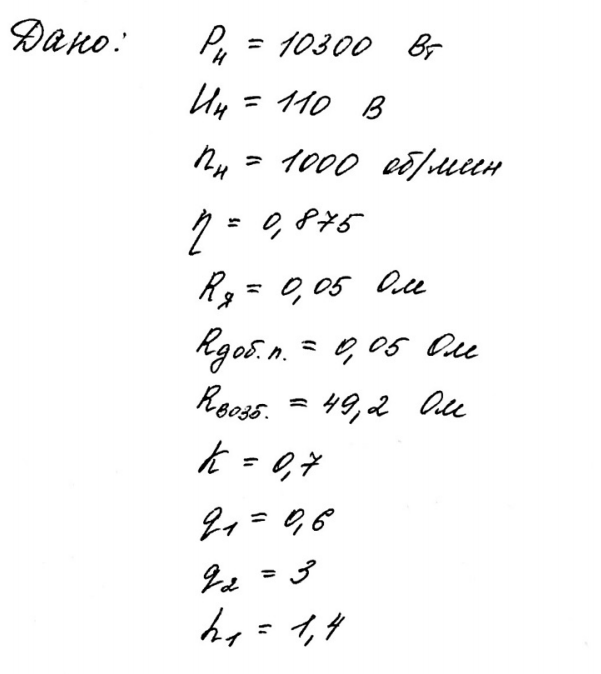 Дано: Pн = 10300 Вт
Uн = 110 В
nн = 1000 об/мин
η = 0,875
Rя = 0,05 Ом
Rдоб.п. = 0,05 Ом
Rвозб. = 49,2 Ом
k = 0,7
q1 = 0,6
q2 = 3
h1 = 1,4